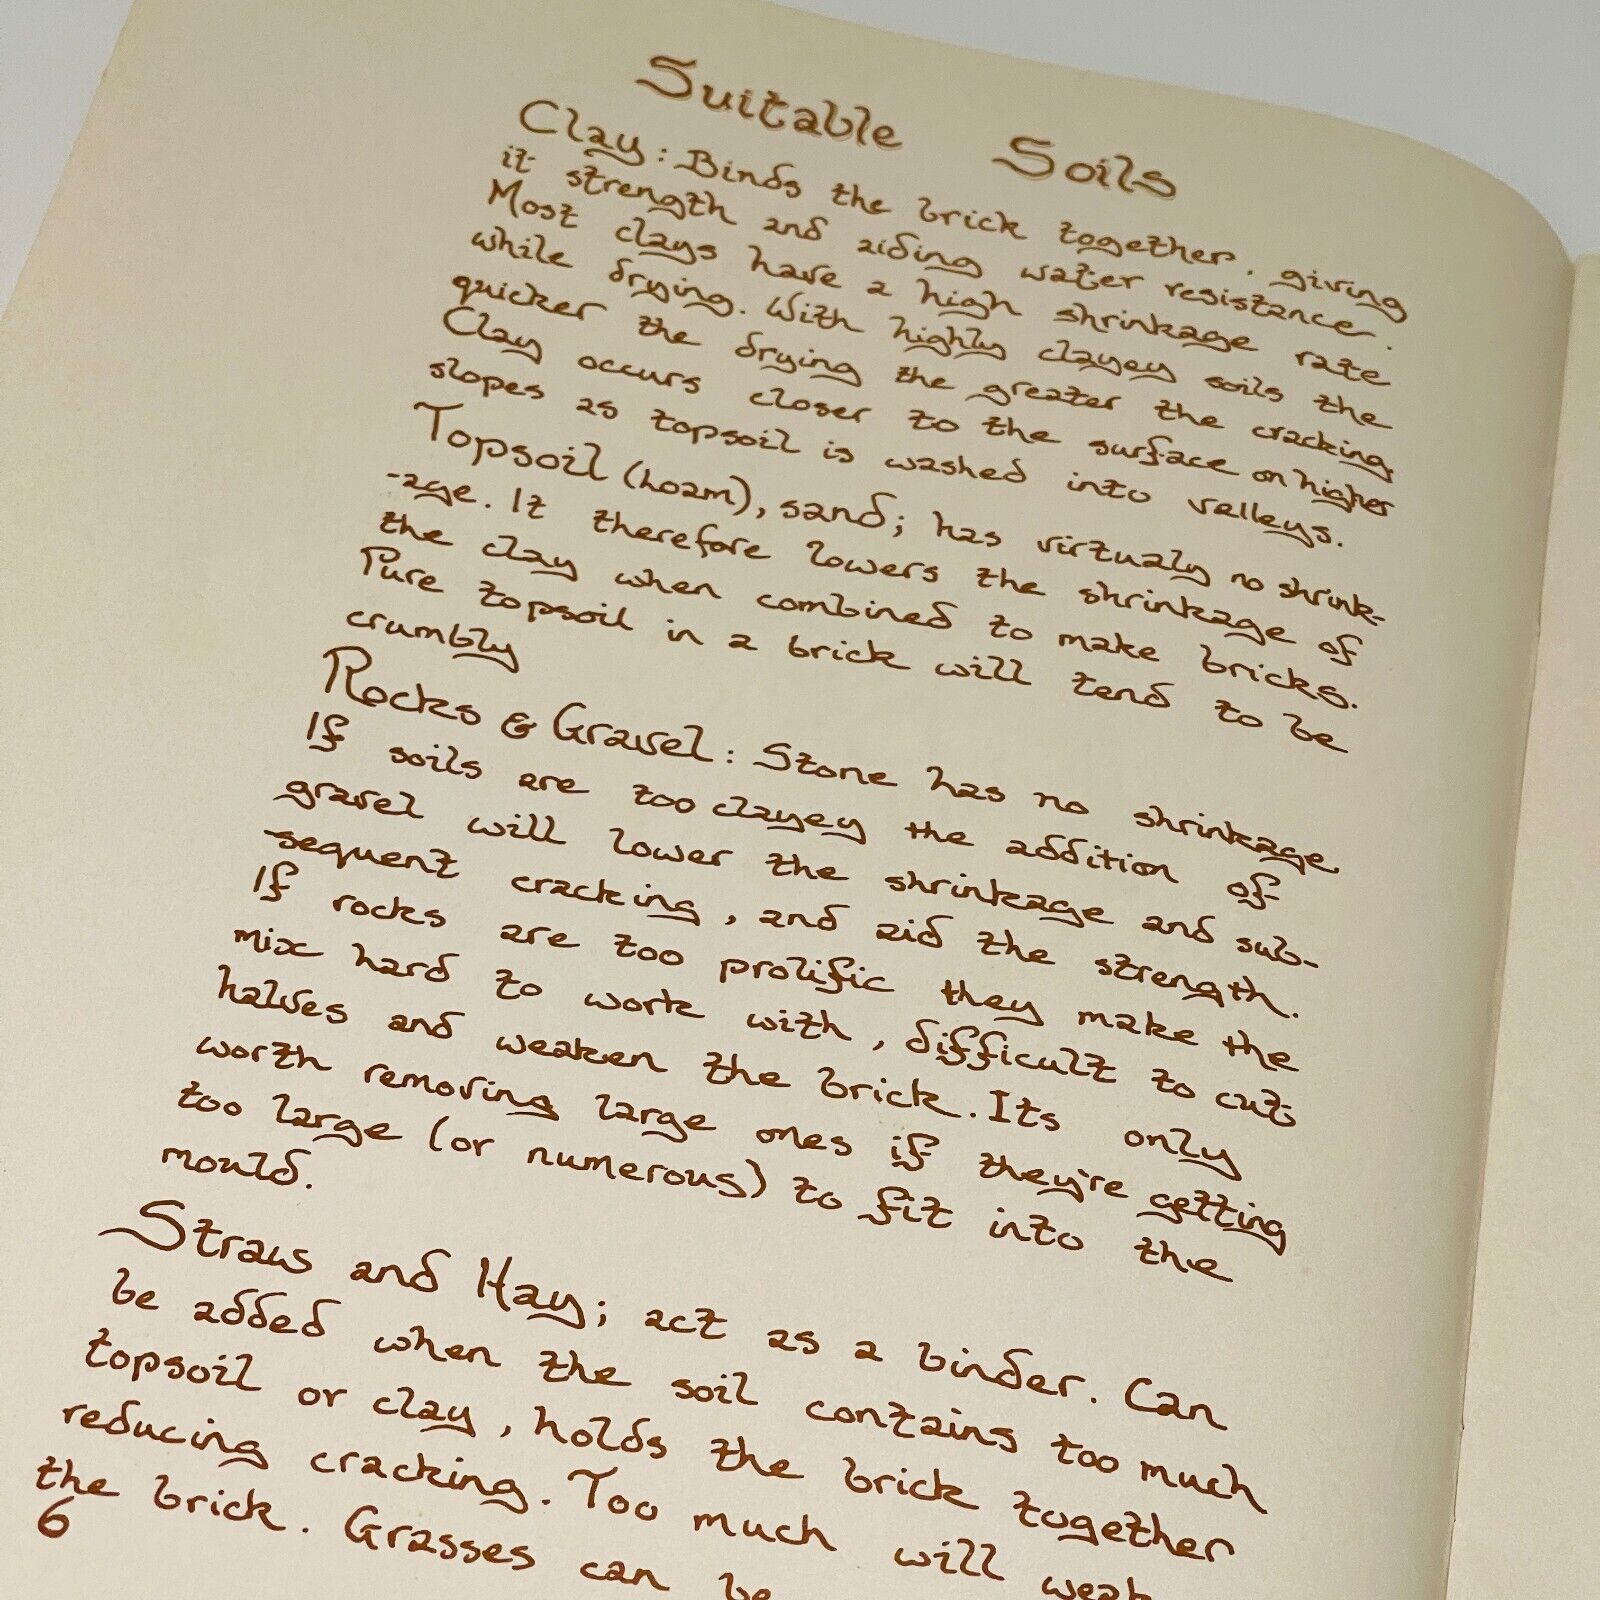 Suitable Soils
Clay: Binds the brick together, giving
it strength and aiding water resistance.
Most clays have a high shrinkage rate
while drying. With highly clayey soils the
quicker the drying the greater the cracking.
Clay occurs closer to the surface on higher
slopes as topsoil is washed into valleys.
Topsoil (hoam), sand; has virtualy no shrink-
-age. It therefore lowers the shrinkage of
the clay when combined to make bricks.
Pure topsoil in a brick will tend to be
crumbly
Rocks & Gravel: Stone has no shrinkage.
If soils are too clayey the addition of
gravel will lower the shrinkage and sub-
-sequent cracking, and aid the strength.
If rocks are too prolific they make the
mix hard to work with, difficult to cut
halves and weaken the brick. Its only
worth removing large ones if they're getting
too large (or numerous) to fit into the
mould.
Straws and Hay; act as a binder. Can
be added when the soil contains too much
topsoil or clay, holds the brick together
reducing cracking. Too much will weak
the brick. Grasses can be
6